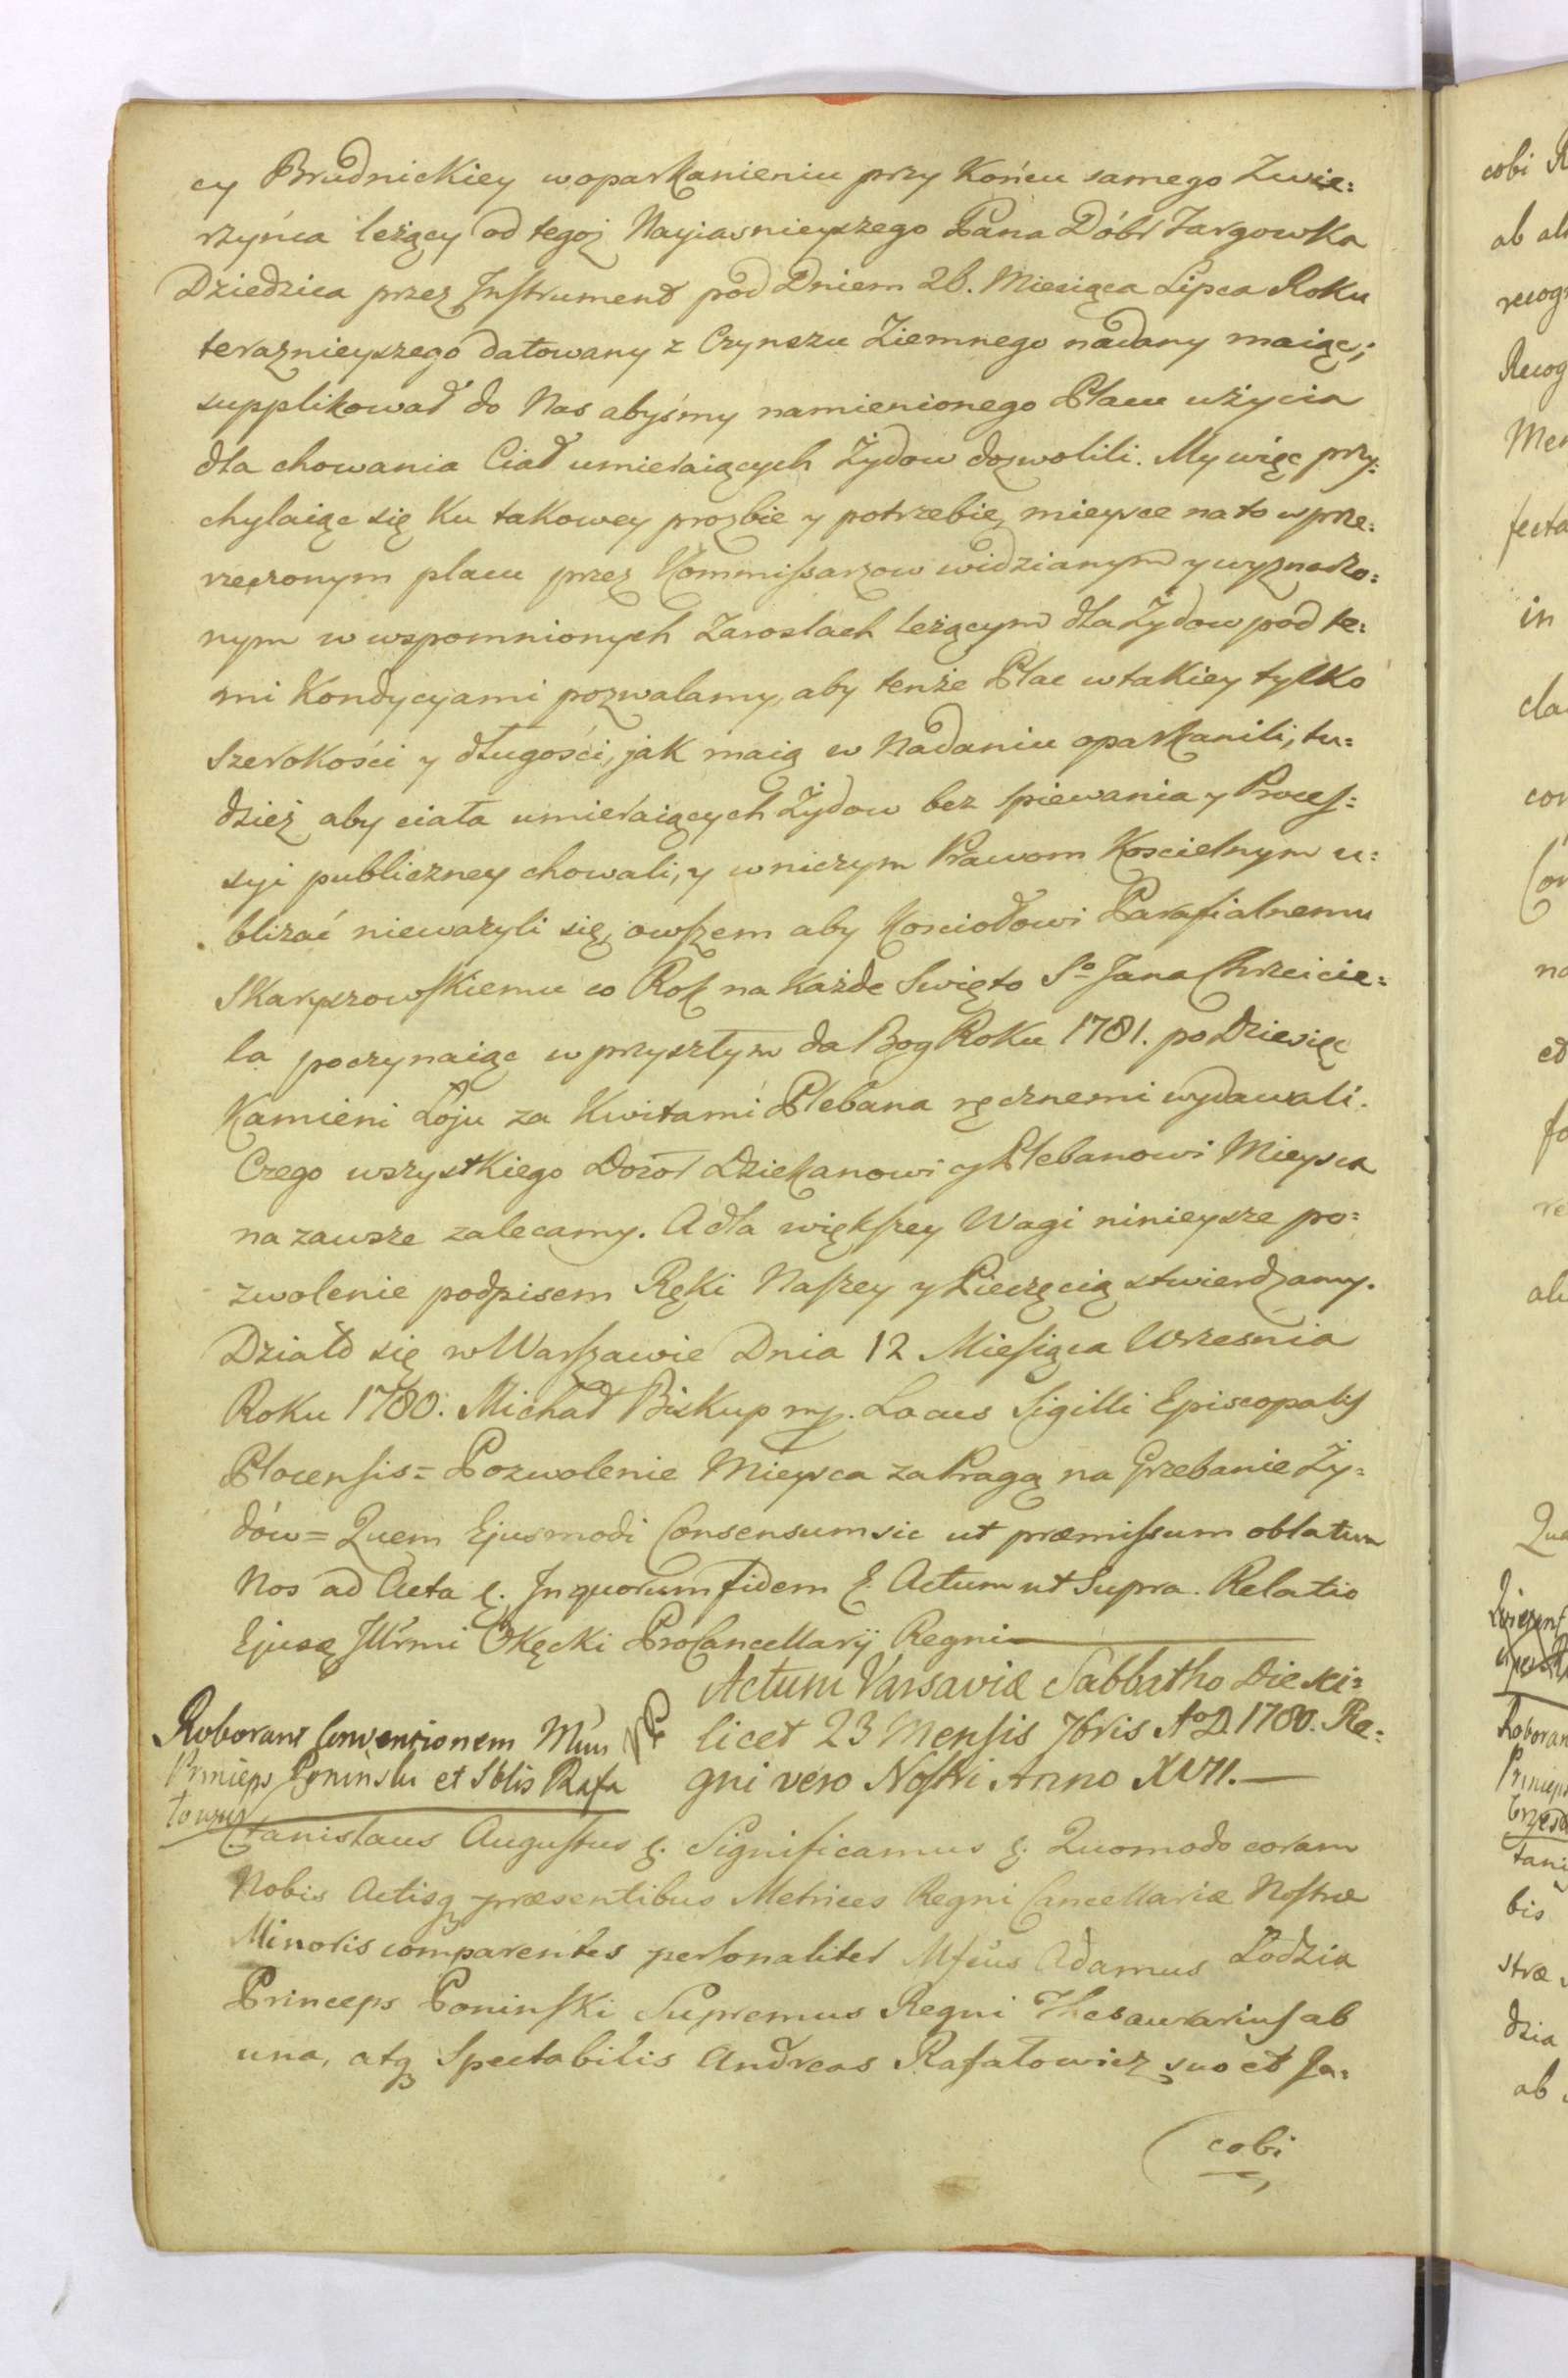 cy Brudnickiey w oparkanieniu przy Końcu samego Zwie:
rzyńca leżący od tegoż Nayiasnieyszego Pana Dóbr Targowka
Dziedzica przez Instrument pod Dniem 28. Miesiąca Lipca Roku
teraznieyszego datowany z Czynszu Ziemnego nadany maiąc;
supplikował do Nas abyśmy namienionego Placu użycia
dla chowania Ciał umieraiących Żydow dozwolili. My więc przy:
chylaiąc się Ku takowey prozbie y potrzebie, mieysce na to w prze:
rzeczonym placu przez Kommissarzow widzianym y wyznaczo:
nym w wspomnionych Zaroslach leżącym dla Żydow pod te:
mi Kondycyami pozwalamy, aby tenże Plac w takiey tylko
Szerokości y długości, jak maią w Nadaniu oparkanili, tu:
dzież aby ciała umieraiących Żydow bez spiewania y Proces:
syi publiczney chowali, y w niczym Prawom Koscielnym u:
bliżać nieważyli się, owszem aby Kosciołowi Parafialnemu
Skaryszowskiemu co Rok na każde Swięto So Jana Chrzcicie:
la poczynaiąc w przyszłym da Bog Roku 1781. po Dziesięc
Kamieni Łoju za Kwitami Plebana ręcznemi wydawali.
Czego wszystkiego Dozor Dziekanowi y Plebanowi Mieysca
na zawsze zalecamy. A dla większey Wagi ninieysze po:
zwolenie podpisem Ręki Naszey y Pieczęcią stwierdzamy.
Działo się w Warszawie Dnia 12 Miesiąca Wrzesnia
Roku 1780. Michał Biskup mp. Locus Sigilli Episcopalis
Plocensis = Pozwolenie Mieysca za Pragą na Grzebanie Ży:
dów = Quem Ejusmodi Consensum sic ut præmissum oblatum
Nos ad Acta &. In quorum fidem &. Actum ut Supra. Relatio
Ejusdę Illrmi Okęcki ProCancellarij Regni
Actum Varsaviæ Sabbatho Die sci:
licet 23 Mensis 7bris Ao D. 1780. Re:
gni vero Nostri Anno XVII.
Roborant Conventionem
Princeps Poninski et Sblis Rafa
towicz
Stanislaus Augustus &. Significamus &. Quomodo coram
Nobis Actisq præsentibus Metrices Regni Cancellariæ Nostræ
Minoris comparentes personaliter Mfcus Adamus Łodzia
Princeps Poninski Supremus Regni Thesaurarius ab
una, atq Spectabilis Andreas Rafałowicz suo et Ja:
cobi